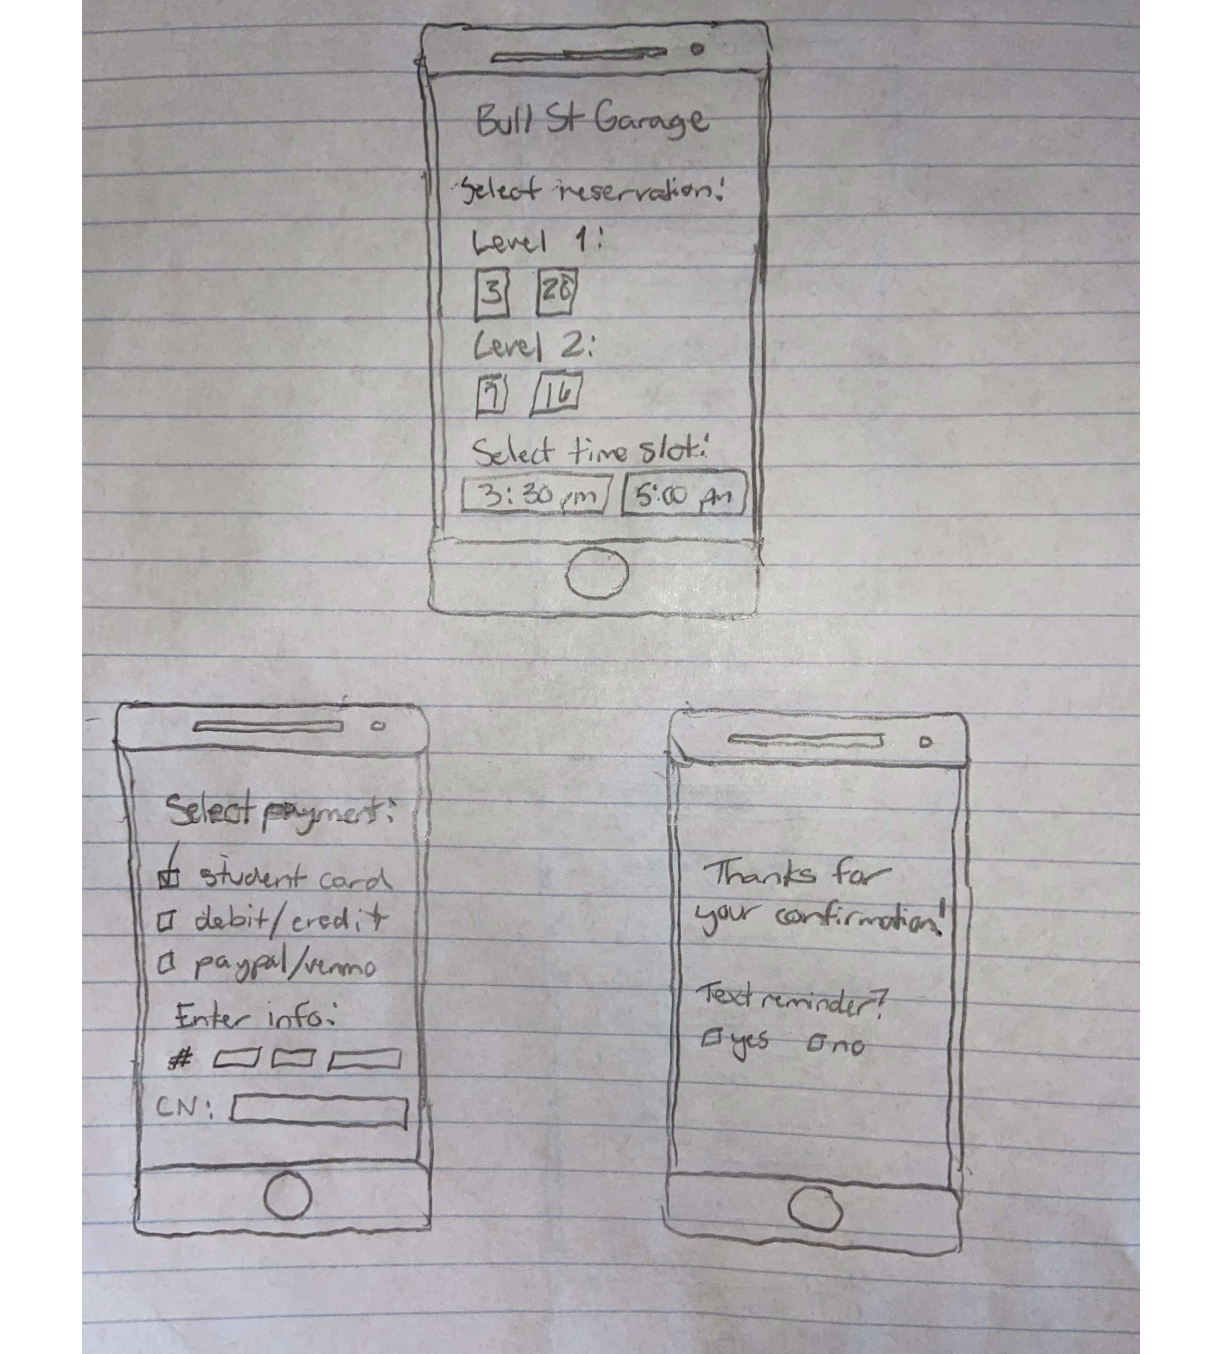 Bull St Garage
Select reservation:
Level 1:
3 28
Level 2:
7 16
Select time slot:
3:30 pm 5:00 pm
Select payment:
student card
debit/credit
paypal/venmo
Enter info:
#
CN:
Thanks for
your confirmation!
Text reminder?
yes no